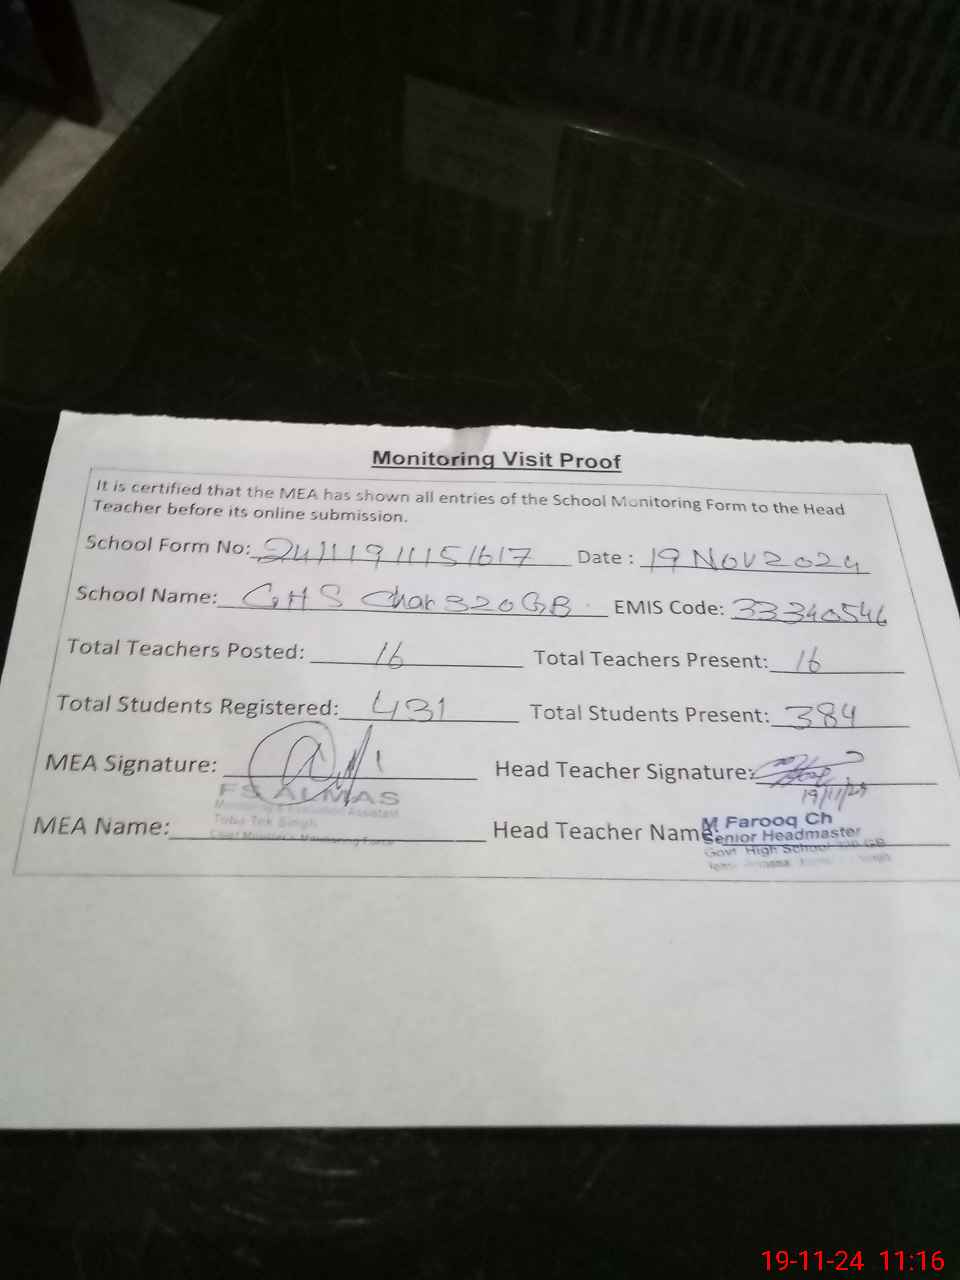 Monitoring Visit Proof
It is certified that the MEA has shown all entries of the School Monitoring Form to the Head
Teacher before its online submission.
School Form No: 24111911151617 Date : 19 Nov 2024
School Name: GHS Chak 320GB EMIS Code: 33340546
Total Teachers Posted: 16 Total Teachers Present: 16
Total Students Registered: 431 Total Students Present: 384
MEA Signature: Head Teacher Signature:
19/11/24
FS ALMAS
Monitoring Assistant
Toba Tek Singh
Chief Minister's Monitoring Force
MEA Name: Head Teacher Name:
M Farooq Ch
Senior Headmaster
Govt High School 320 GB
19-11-24 11:16